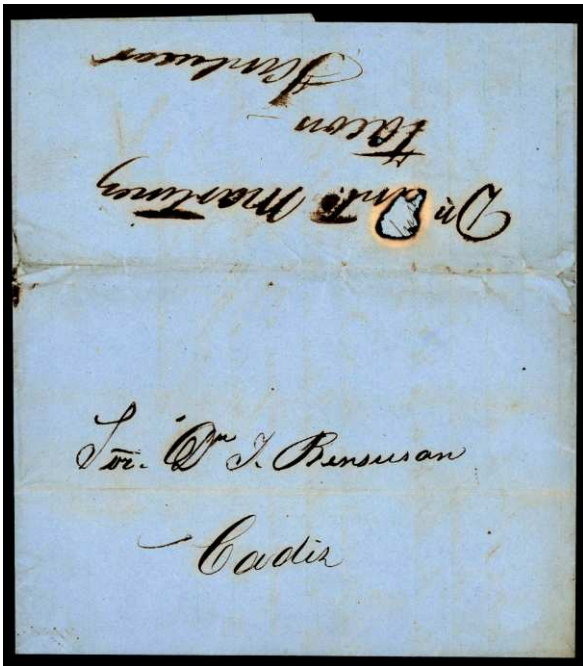 Dn Anto. Martinez
Tacon
Sanlucar
Sor. Dn J. Bensusan
Cadiz